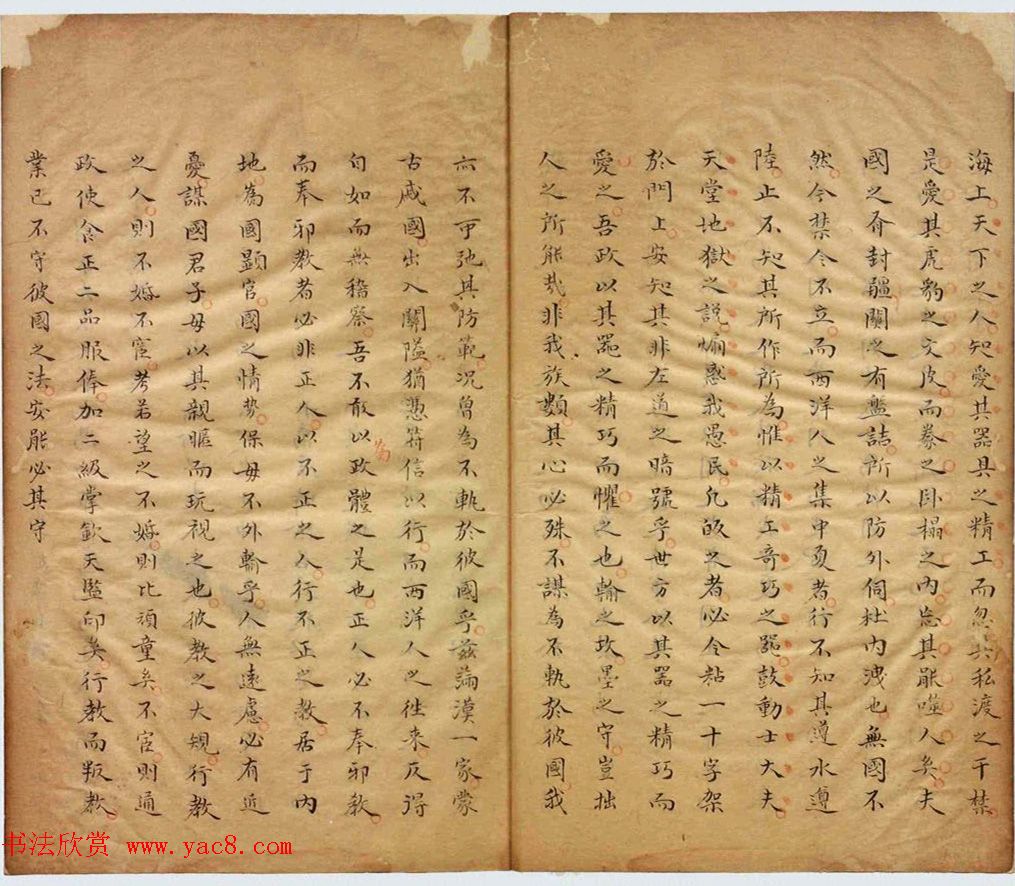 海上天下之人知愛其器具之精工而忽其私渡之干禁
是愛其虎豹之文皮而豢之臥榻之內忘其能噬人矣夫
國之有封疆關之有盤詰所以防外伺杜內洩也無國不
然今禁令不立而西洋人之集中夏者行不知其遵水遵
陸止不知其所作所為惟以精工奇巧之器鼓動士大夫
天堂地獄之說煽惑我愚民凡皈之者必令粘一十字架
於門上安知其非左道之暗號乎世方以其器之精巧而
愛之吾政以其器之精巧而懼之也輸之攻墨之守豈拙
人之所能哉非我族類其心必殊不謀為不軌於彼國我
亦不可弛其防範况曾為不軌於彼國乎茲滿漢一家蒙
古咸國出入關隘猶憑符信以行而西洋人之徃來反得
自如而無稽察吾不敢以政體之是也正人必不奉邪教
為
而奉邪教者必非正人以不正之人行不正之教居于內
地為國顯官國之情勢保毋不外輸乎人無遠慮必有近
憂謀國君子毋以其親暱而玩視之也彼教之大規行教
之人則不婚不宦考若望之不婚則比頑童矣不宦則通
政使食正二品服俸加二級掌欽天監印矣行教而叛教
業已不守彼國之法安能必其守
书法欣赏 www.yac8.com